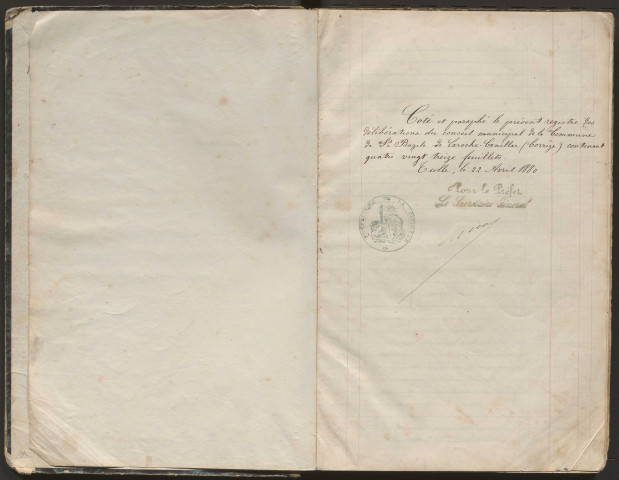 Coté et paraphé le présent registre des
délibérations du conseil municipal de la Commune
de St Bazile de Laroche-Canillac (Corrèze) contenant
quatre vingt treize feuillets.
Tulle, le 22 Avril 1880
Pour le Préfet
Le Secrétaire Général